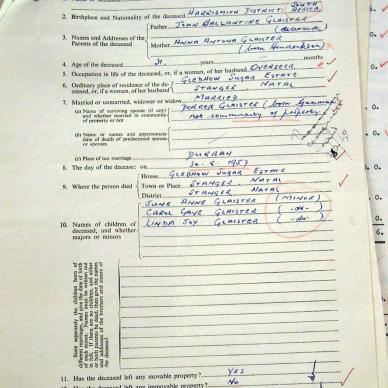 2. Birthplace and Nationality of the deceased HARRISMITH DISTRICT: SOUTH AFRICA
Father JOHN BALLANTINE GLAISTER
(deceased)
3. Names and Addresses of the Parents of the deceased
Mother ANNA ANTONA GLAISTER
(born Hendriksen)
4. Age of the deceased years months
5. Occupation in life of the deceased, or, if a woman, of her husband OVERSEER
6. Ordinary place of residence of the deceased, or, if a woman, of her husband
GLEDHOW SUGAR ESTATE
STANGER NATAL
7. Married or unmarried, widower or widow MARRIED
(a) Name of surviving spouse (if any) and whether married in community of property or not
GLAISTER (born
not community of property
(b) Name or names and approximate date of death of predeceased spouse or spouses
(c) Place of last marriage DURBAN
8. The day of the deceased: on 30.8.1957
House GLEDHOW SUGAR ESTATE
9. Where the person died
Town or Place STANGER. NATAL
District STANGER NATAL
10. Names of children of deceased, and whether majors or minors
JUNE ANNE GLAISTER (MINOR)
CAROL GAYE GLAISTER ( -do- )
LINDA JOY GLAISTER ( -do- )
State separately the children born of different marriages, and give the date of birth of each minor.
11. Has the deceased left any movable property? YES
NO